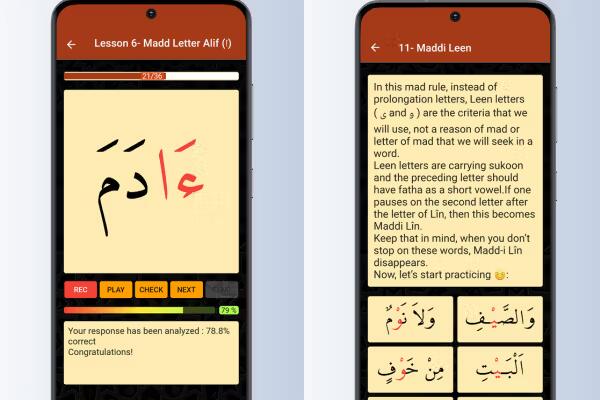 Lesson 6- Madd Letter Alif (ا)
21/36
ءَادَمَ
REC PLAY CHECK NEXT
79 %
Your response has been analyzed : 78.8%
correct
Congratulations!
11- Maddi Leen
In this mad rule, instead of
prolongation letters, Leen letters
( ى and و ) are the criteria that we
will use, not a reason of mad or
letter of mad that we will seek in a
word.
Leen letters are carrying sukoon
and the preceding letter should
have fatha as a short vowel.If one
pauses on the second letter after
the letter of Lîn, then this becomes
Maddi Lîn.
Keep that in mind, when you don't
stop on these words, Madd-i Lîn
disappears.
Now, let's start practicing 😊:
وَالصَّيْفِ وَلاَ نَوْمٌ
اَلْبَيْتِ مِنْ خَوْفٍ